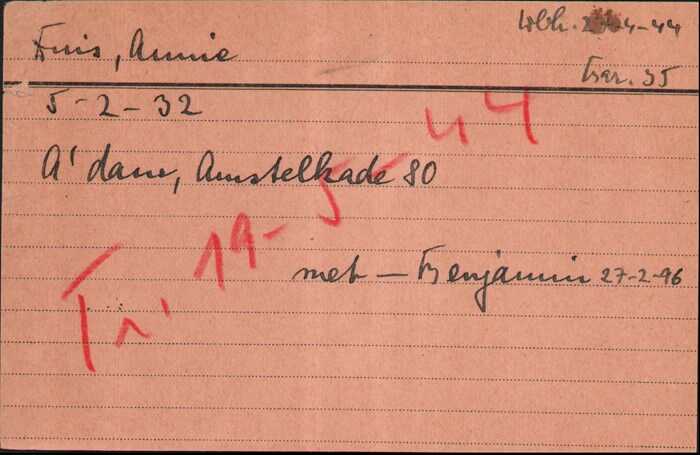 Wbk. 4-44
Duis, Annie
Bar. 35
5-2-32
A'dam, Amstelkade 80
met — Benjamin 27-2-96
Tr. 19-5-44